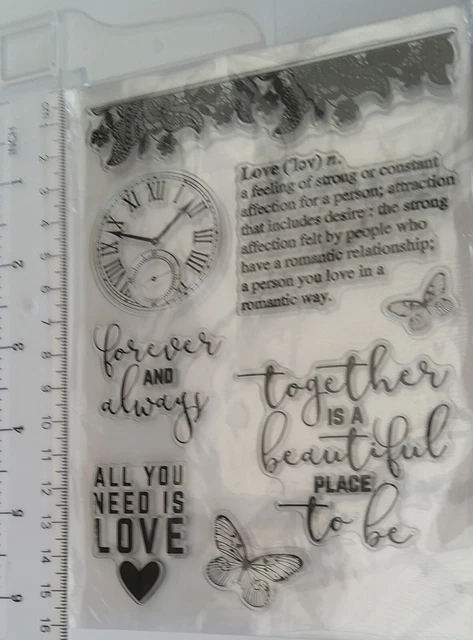 Love ('ləv) n.
a feeling of strong or constant
affection for a person; attraction
that includes desire : the strong
affection felt by people who
have a romantic relationship;
a person you love in a
romantic way.
forever
AND
always
together
IS A
beautiful
PLACE
to be
ALL YOU
NEED IS
LOVE
INCH
1
2
3
4
5
6
cm
1
2
3
4
5
6
7
8
9
10
11
12
13
14
15
16